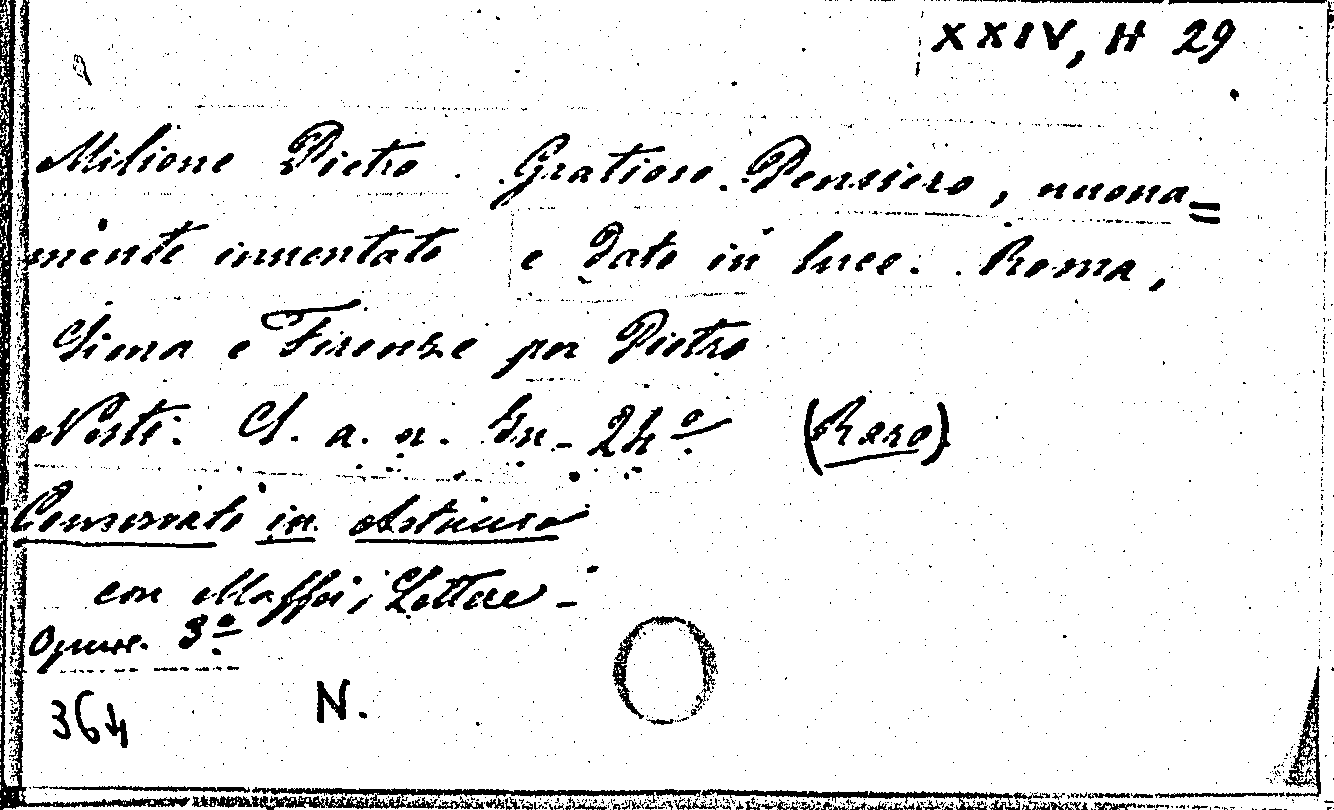 XXIV, H 29
Milione Pietro. Gratioso Pensiero, nuoua=
mente inuentato e dato in luce. Roma,
Siena e Firenze per Pietro
Nesti. S. a. n. In-24º (Raro)
Conservato in Astuccio
con Maffei, Lettere -
Opusc. 3º
364 N.